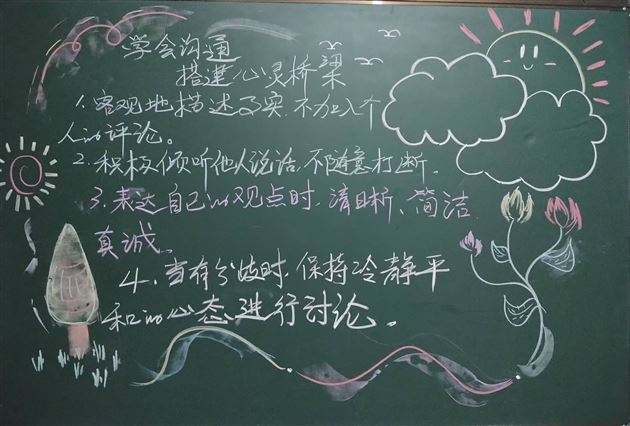 学会沟通
搭建心灵桥梁
1. 客观地描述事实,不加入个
人的评论。
2. 积极倾听他人说话,不随意打断.
3. 表达自己的观点时,清晰、简洁
真诚.
4. 当有分歧时,保持冷静平
和的心态进行讨论。